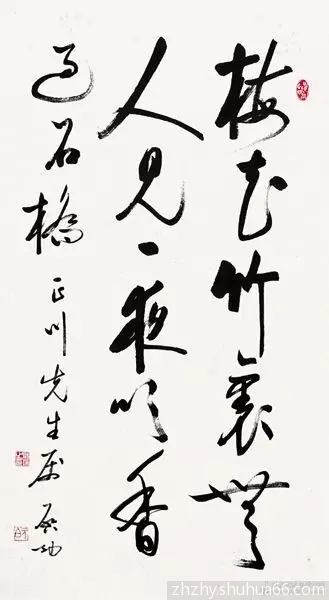 梅花竹裏無
人見一夜吹香
過石橋 正川先生属 启功
zhzhyshuhua66.com